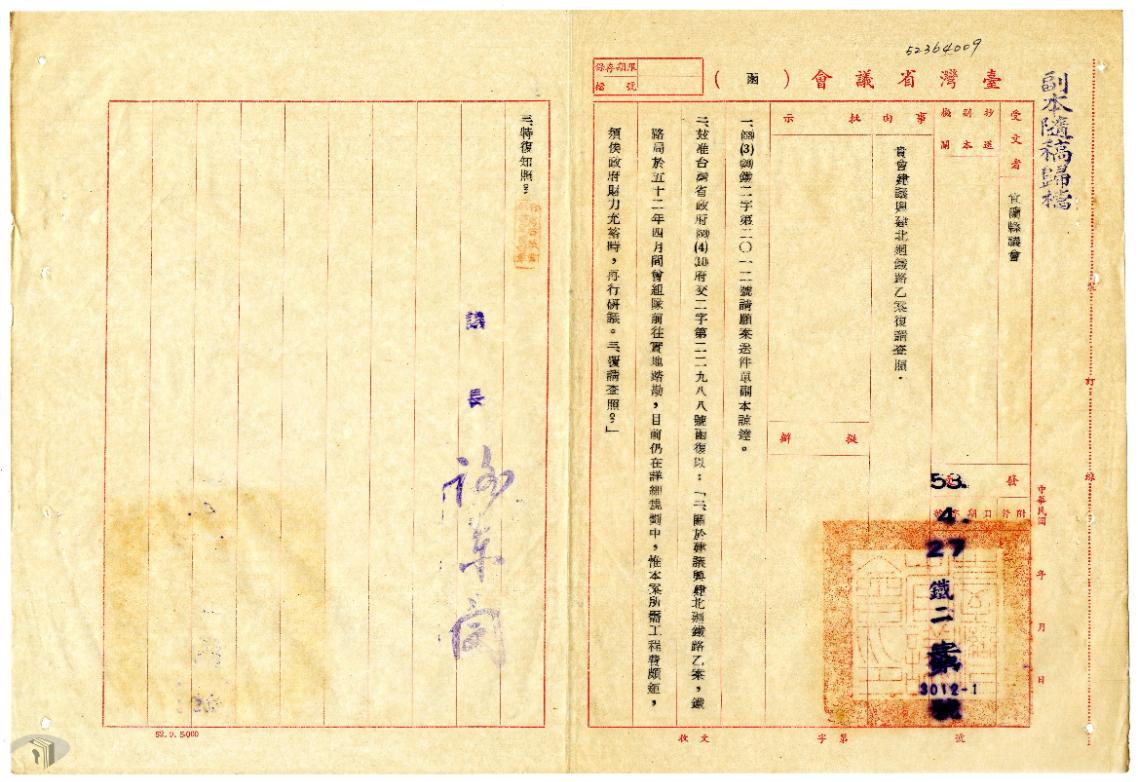 52364009
副本隨稿歸檔
保存期限
檔號
臺灣省議會（函）
受文者
宜蘭縣議會
抄送副本機關
事由
貴會建議興建北廻鐵路乙案復請查照．
批示
擬辦
發文
附件
日期
字號
中華民國 年 月 日
53. 4. 27 鐵二 字 3012-1 號
一、
鐵二字第二〇一二號請願案送件單副本諒達。
二、玆准台灣省政府
(4)
府交二字第二二九八八號函復以：「二、關於建議興建北廻鐵路乙案，鐵
路局於五十二年四月間曾組隊前往實地踏勘，目前仍在詳細規劃中，惟本案所需工程費頗鉅，
須俟政府財力充裕時，再行研議。三、復請查照。」
三、特復知照。
議長
收文 字第 號
裝
訂
線
52.9.5000